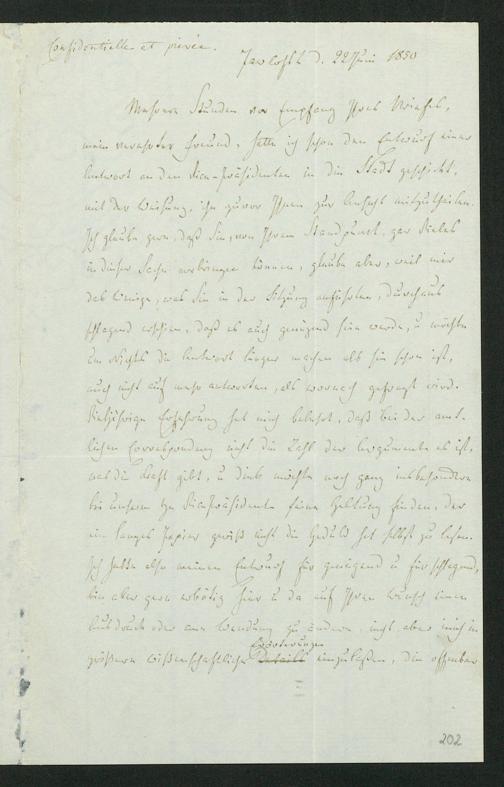 Confidentielle et privée.
d. 22 Juni 1850
Mehrere Stunden vor Empfang Ihres Briefes,
mein verehrter Freund, hatte ich schon den Entwurf einer
Antwort an den Vice-Präsidenten in die Stadt geschickt,
mit der Weisung, ihn zuvor Ihnen zur Ansicht mitzutheilen.
Ich glaube gern, daß Sie, von Ihrem Standpunct, gar Vieles
in dieser Sache vorbringen können, glaube aber, weil mir
das Wenige, was Sie in der Sitzung anführten, durchaus
schlagend erschien, daß es auch genügend sein werde, u möchte
um Nichts die Antwort länger machen als sie schon ist,
auch nicht auf mehr antworten, als wornach gefragt wird.
Vieljährige Erfahrung hat mich belehrt, daß bei der amt-
lichen Correspondenz nicht die Zahl der Argumente es ist,
was die Kraft gibt, u dies möchte noch ganz insbesondere
bei unserem Vicepräsidenten seine Geltung finden, der
ein langes Papier gewiß nicht die Geduld hat selbst zu lesen.
Ich halte also meinen Entwurf für genügend u für schlagend,
bin aber gern erbötig hier u da auf Ihren Wunsch einen
Ausdruck oder eine Wendung zu ändern, nicht aber mich in
Erörterungen
größere wissenschaftliche Details einzulassen, die offenbar
202